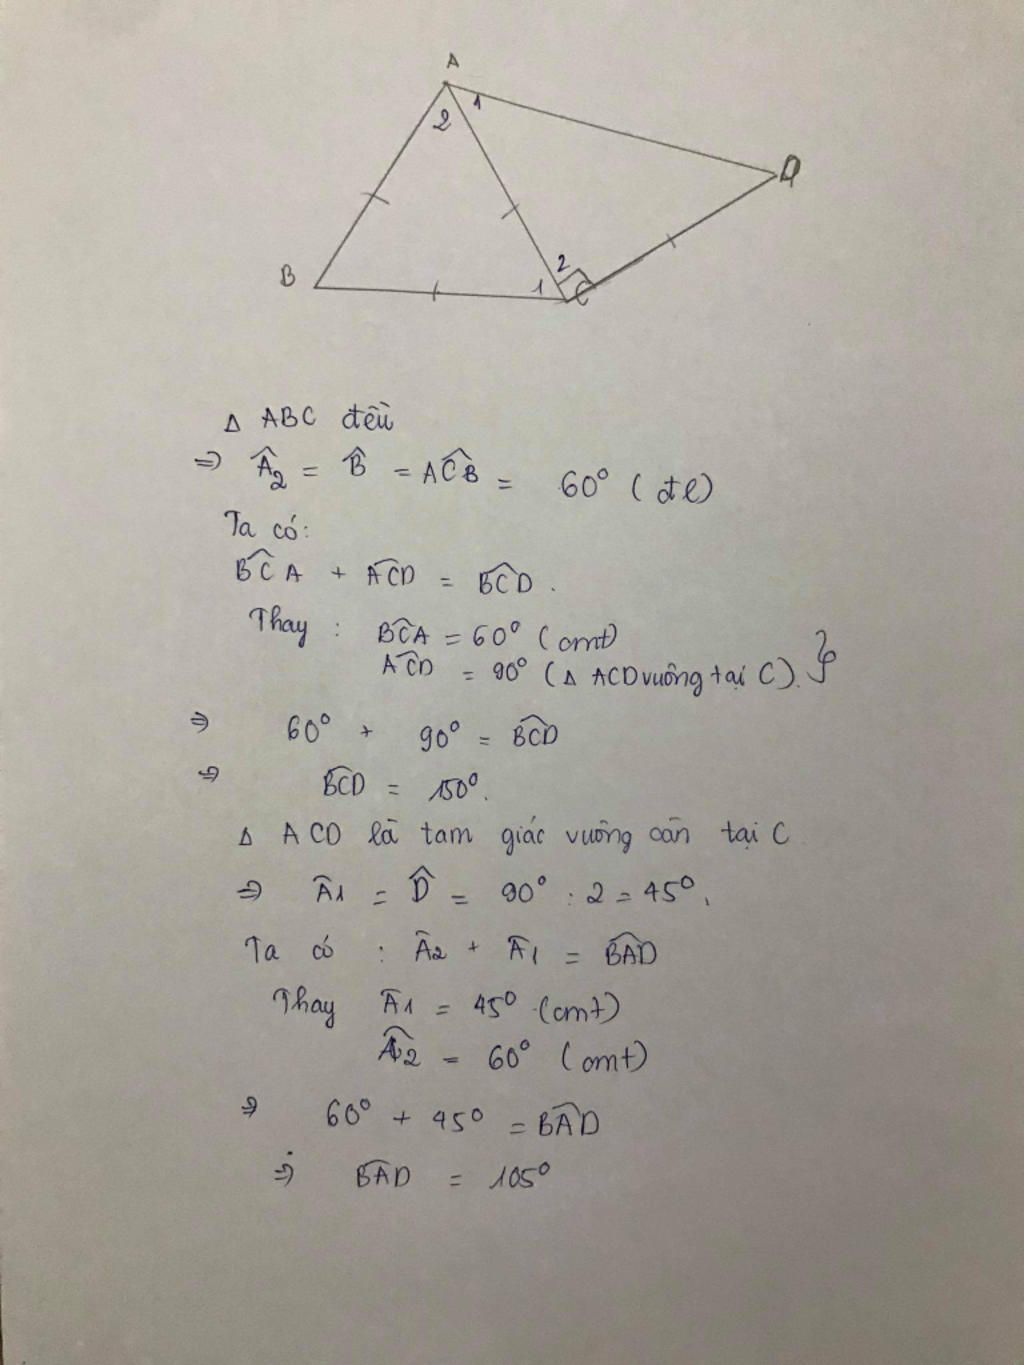 A
1
2
D
B
2
1
C
Δ ABC đều
⇒ Â₂ = B̂ = AĈB = 60° (đl)
Ta có:
BĈA + AĈD = BĈD.
Thay : BĈA = 60° (cmt)
AĈD = 90° (Δ ACD vuông tại C). }
⇒ 60° + 90° = BĈD
⇒ BĈD = 150°.
Δ ACD là tam giác vuông cân tại C
⇒ Â1 = D̂ = 90° : 2 = 45°.
Ta có : Â2 + Â1 = BÂD
Thay Â1 = 45° (cmt)
Â2 = 60° (cmt)
⇒ 60° + 45° = BÂD
⇒ BÂD = 105°